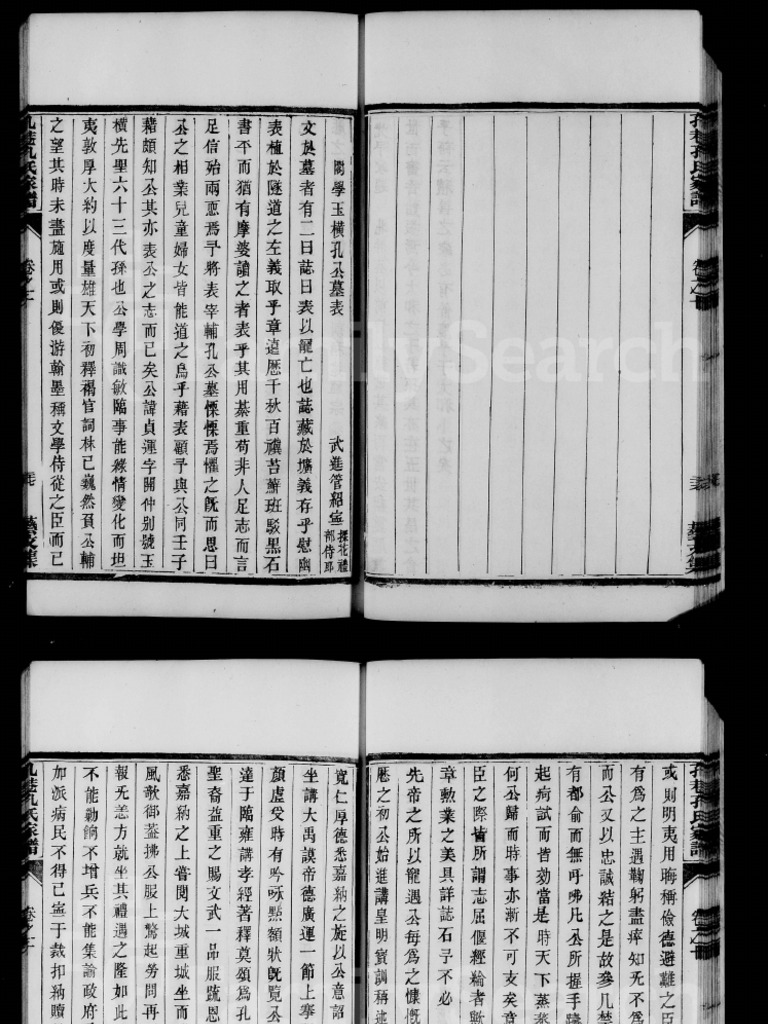 閣學玉橫孔公墓表 武進管紹寧 探花禮部侍郎
文於墓者有二曰誌曰表以寵亡也誌藏於壙義存乎慰幽
表植於隧道之左義取乎章遠歷千秋百禩苔蘚班駁黑石
書平而猶有摩婆讀之者表乎其用綦重苟非人足志而言
足信殆兩恧焉予將表宰輔孔公墓慄慄焉懼之既而思曰
公之相業兒童婦女皆能道之烏乎藉表顧予與公同壬子
藉頗知公其亦表公之志而已矣公諱貞運字開仲別號玉
橫先聖六十三代孫也公學周識敏臨事能緣情變化而坦
夷敦厚大約以度量雄天下初釋褐官詞林已巍然負公輔
之望其時未盡施用或則優游翰墨稱文學侍從之臣而已
孔巷孔氏家譜
藝文集
或則明夷用晦稱儉德避難之臣
有為之主遇鞠躬盡瘁知无不為
而公又以忠誠結之是故參几楚
有都俞而無吁咈凡公所握手
起疴試而皆効當是時天下蒸
何公歸而時事亦漸不可支矣
臣之際皆所謂志屈偃經綸者
章勲業之美具詳誌石予不必
先帝之所以寵遇公每為之慷慨
歷之初公始進講皇明寶訓稱述
寬仁厚德悉嘉納之旋以公意詔
坐講大禹謨帝德廣運一節上搴
顏虛受時有吟咏點額狀既覽公
達于臨雍講孝經著釋奠頌為孔
聖裔益重之賜文武一品服疏恩
悉嘉納之上嘗閱大城重城坐而
風欹御蓋拂公服上驚起勞問再
報无恙方就坐其禮遇之隆如此
不能勦餉不增兵不能集諭政府
加派病民不得已寧于裁扣納贖
孔巷孔氏家譜